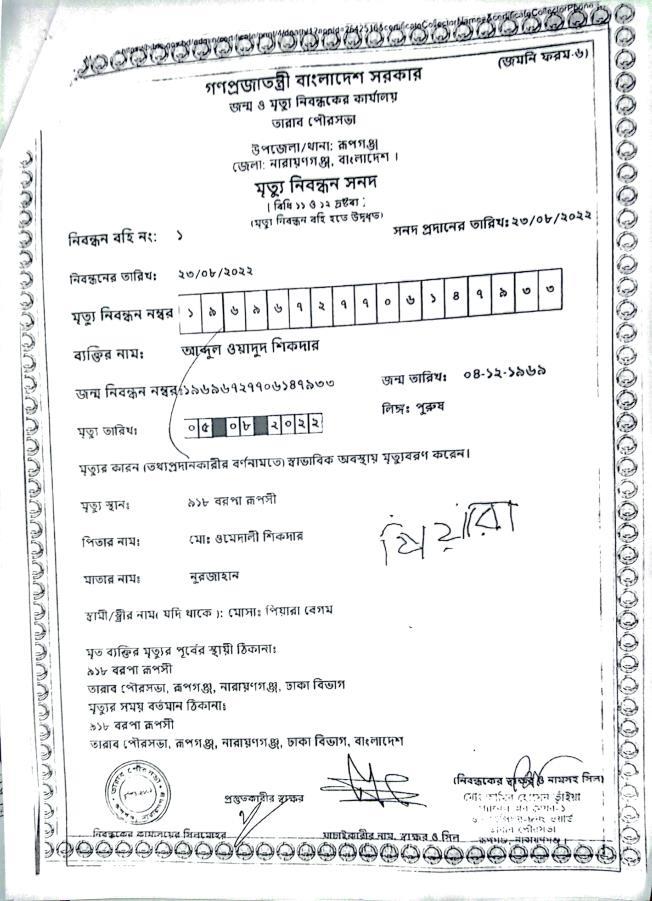 (জমনি ফরম-৬)
গণপ্রজাতন্ত্রী বাংলাদেশ সরকার
জন্ম ও মৃত্যু নিবন্ধকের কার্যালয়
তারাব পৌরসভা
উপজেলা/থানা: রূপগঞ্জ
জেলা: নারায়ণগঞ্জ, বাংলাদেশ ।
মৃত্যু নিবন্ধন সনদ
। বিধি ১১ ও ১২ দ্রষ্টব্য ;
(মৃত্যু নিবন্ধন বহি হতে উদ্ধৃত)
নিবন্ধন বহি নং: ১ সনদ প্রদানের তারিখ: ২৩/০৮/২০২২
নিবন্ধনের তারিখ: ২৩/০৮/২০২২
মৃত্যু নিবন্ধন নম্বর ১ ৯ ৬ ৯ ৬ ৭ ২ ৭ ৭ ০ ৬ ১ ৪ ৭ ৯ ৩ ৩
ব্যক্তির নাম: আব্দুল ওয়াদুদ শিকদার
জন্ম নিবন্ধন নম্বর: ১৯৬৯৬৭২৭৭০৬১৪৭৯৩৩ জন্ম তারিখ: ০৪-১২-১৯৬৯
লিঙ্গ: পুরুষ
মৃত্যু তারিখ: ০ ৫ ০ ৮ ২ ০ ২ ২
মৃত্যুর কারন (তথ্যপ্রদানকারীর বর্ণনামতে) স্বাভাবিক অবস্থায় মৃত্যুবরণ করেন।
মৃত্যু স্থান: ৯১৮ বরপা রূপসী
পিতার নাম: মো: ওমেদালী শিকদার
পিয়ারা
মাতার নাম: নুরজাহান
স্বামী/স্ত্রীর নাম( যদি থাকে ): মোসা: পিয়ারা বেগম
মৃত ব্যক্তির মৃত্যুর পূর্বের স্থায়ী ঠিকানা:
৯১৮ বরপা রূপসী
তারাব পৌরসভা, রূপগঞ্জ, নারায়ণগঞ্জ, ঢাকা বিভাগ
মৃত্যুর সময় বর্তমান ঠিকানা:
৯১৮ বরপা রূপসী
তারাব পৌরসভা, রূপগঞ্জ, নারায়ণগঞ্জ, ঢাকা বিভাগ, বাংলাদেশ
তারাব পৌরসভা
(নিবন্ধকের স্বাক্ষর ও নামসহ সিল)
প্রস্তুতকারীর স্বাক্ষর
নিবন্ধকের কার্যালয়ের সিলমোহর
যাচাইকারীর নাম, স্বাক্ষর ও সিল